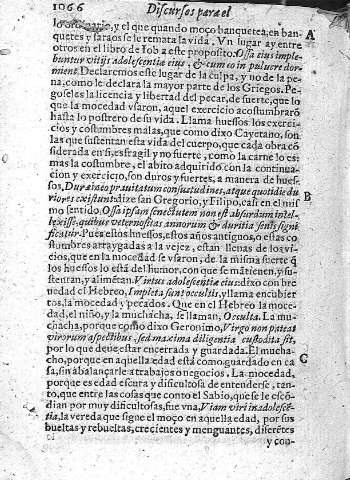 1066
Discursos para el
lo ordinario, y el que quando moço banquetea, en ban-
quetes y saraos se le remata la vida. Vn lugar ay entre
otros en el libro de Iob a este proposito. Ossa eius imple-
buntur vitijs adolescentiæ eius, & cum eo in puluere dor-
mient. Declaremos este lugar de la culpa, y no de la pe-
na, como le declara la mayor parte de los Griegos. Pe-
goseles la licencia y libertad del pecar, de suerte, que lo
que la mocedad vsaron, aquel exercicio acostumbrarō
hasta lo postrero de su vida. Llama huessos los exerci-
cios y costumbres malas, que como dixo Cayetano, son
las que sustentan esta vida del cuerpo, que cada obra cō
siderada en si, es fragil y no fuerte, como la carne lo es:
mas la costumbre, el abito adquirido con la continua-
cion y exercicio, son duros y fuertes, a manera de hues-
sos, Durationes consuetudines, atque quotidie du
riores existunt: dize san Gregorio, y Filipo, casi en el mis
mo sentido. Ossa ipsam senectutem non est absurdum intel-
lexisse, quibus veternositas annorum & duritia senis signi
ficatur. Pues estos huessos, estos años antiguos, o estas co
stumbres arraygadas a la vejez, estan llenas de los vi-
cios, que en la mocedad se vsaron, de la misma suerte q̄
los huessos lo està del humor, con que se mātienen, y su-
stentan, y alimētan. Virtus adolescentiæ eius: dixo con bre
uedad el Hebreo, Impleta sunt occultis, y llama encubier
tos, la mocedad y pecados. Que en el Hebreo la moce-
dad, el niño, y la muchacha, se llaman, Occulta. La mu-
chacha, porque como dixo Geronimo, Virgo non pateat
virorum aspectibus, sed maxima diligentia custodita sit,
por lo que deue estar encerrada y guardada. El mucha-
cho, porque en aquella edad està como guardado en ca
sa, sin abalançarle a trabajos o negocios. La mocedad,
porque es edad escura y dificultosa de entenderse, tan-
to, que entre las cosas que conto el Sabio, que se le escō
dian por muy dificultosas, fue vna, Viam viri in adolescē
tia, la vereda que sigue el moço en aquella edad, por sus
bueltas y rebueltas, crecientes y menguantes, diferētes
y con-
A
B
C